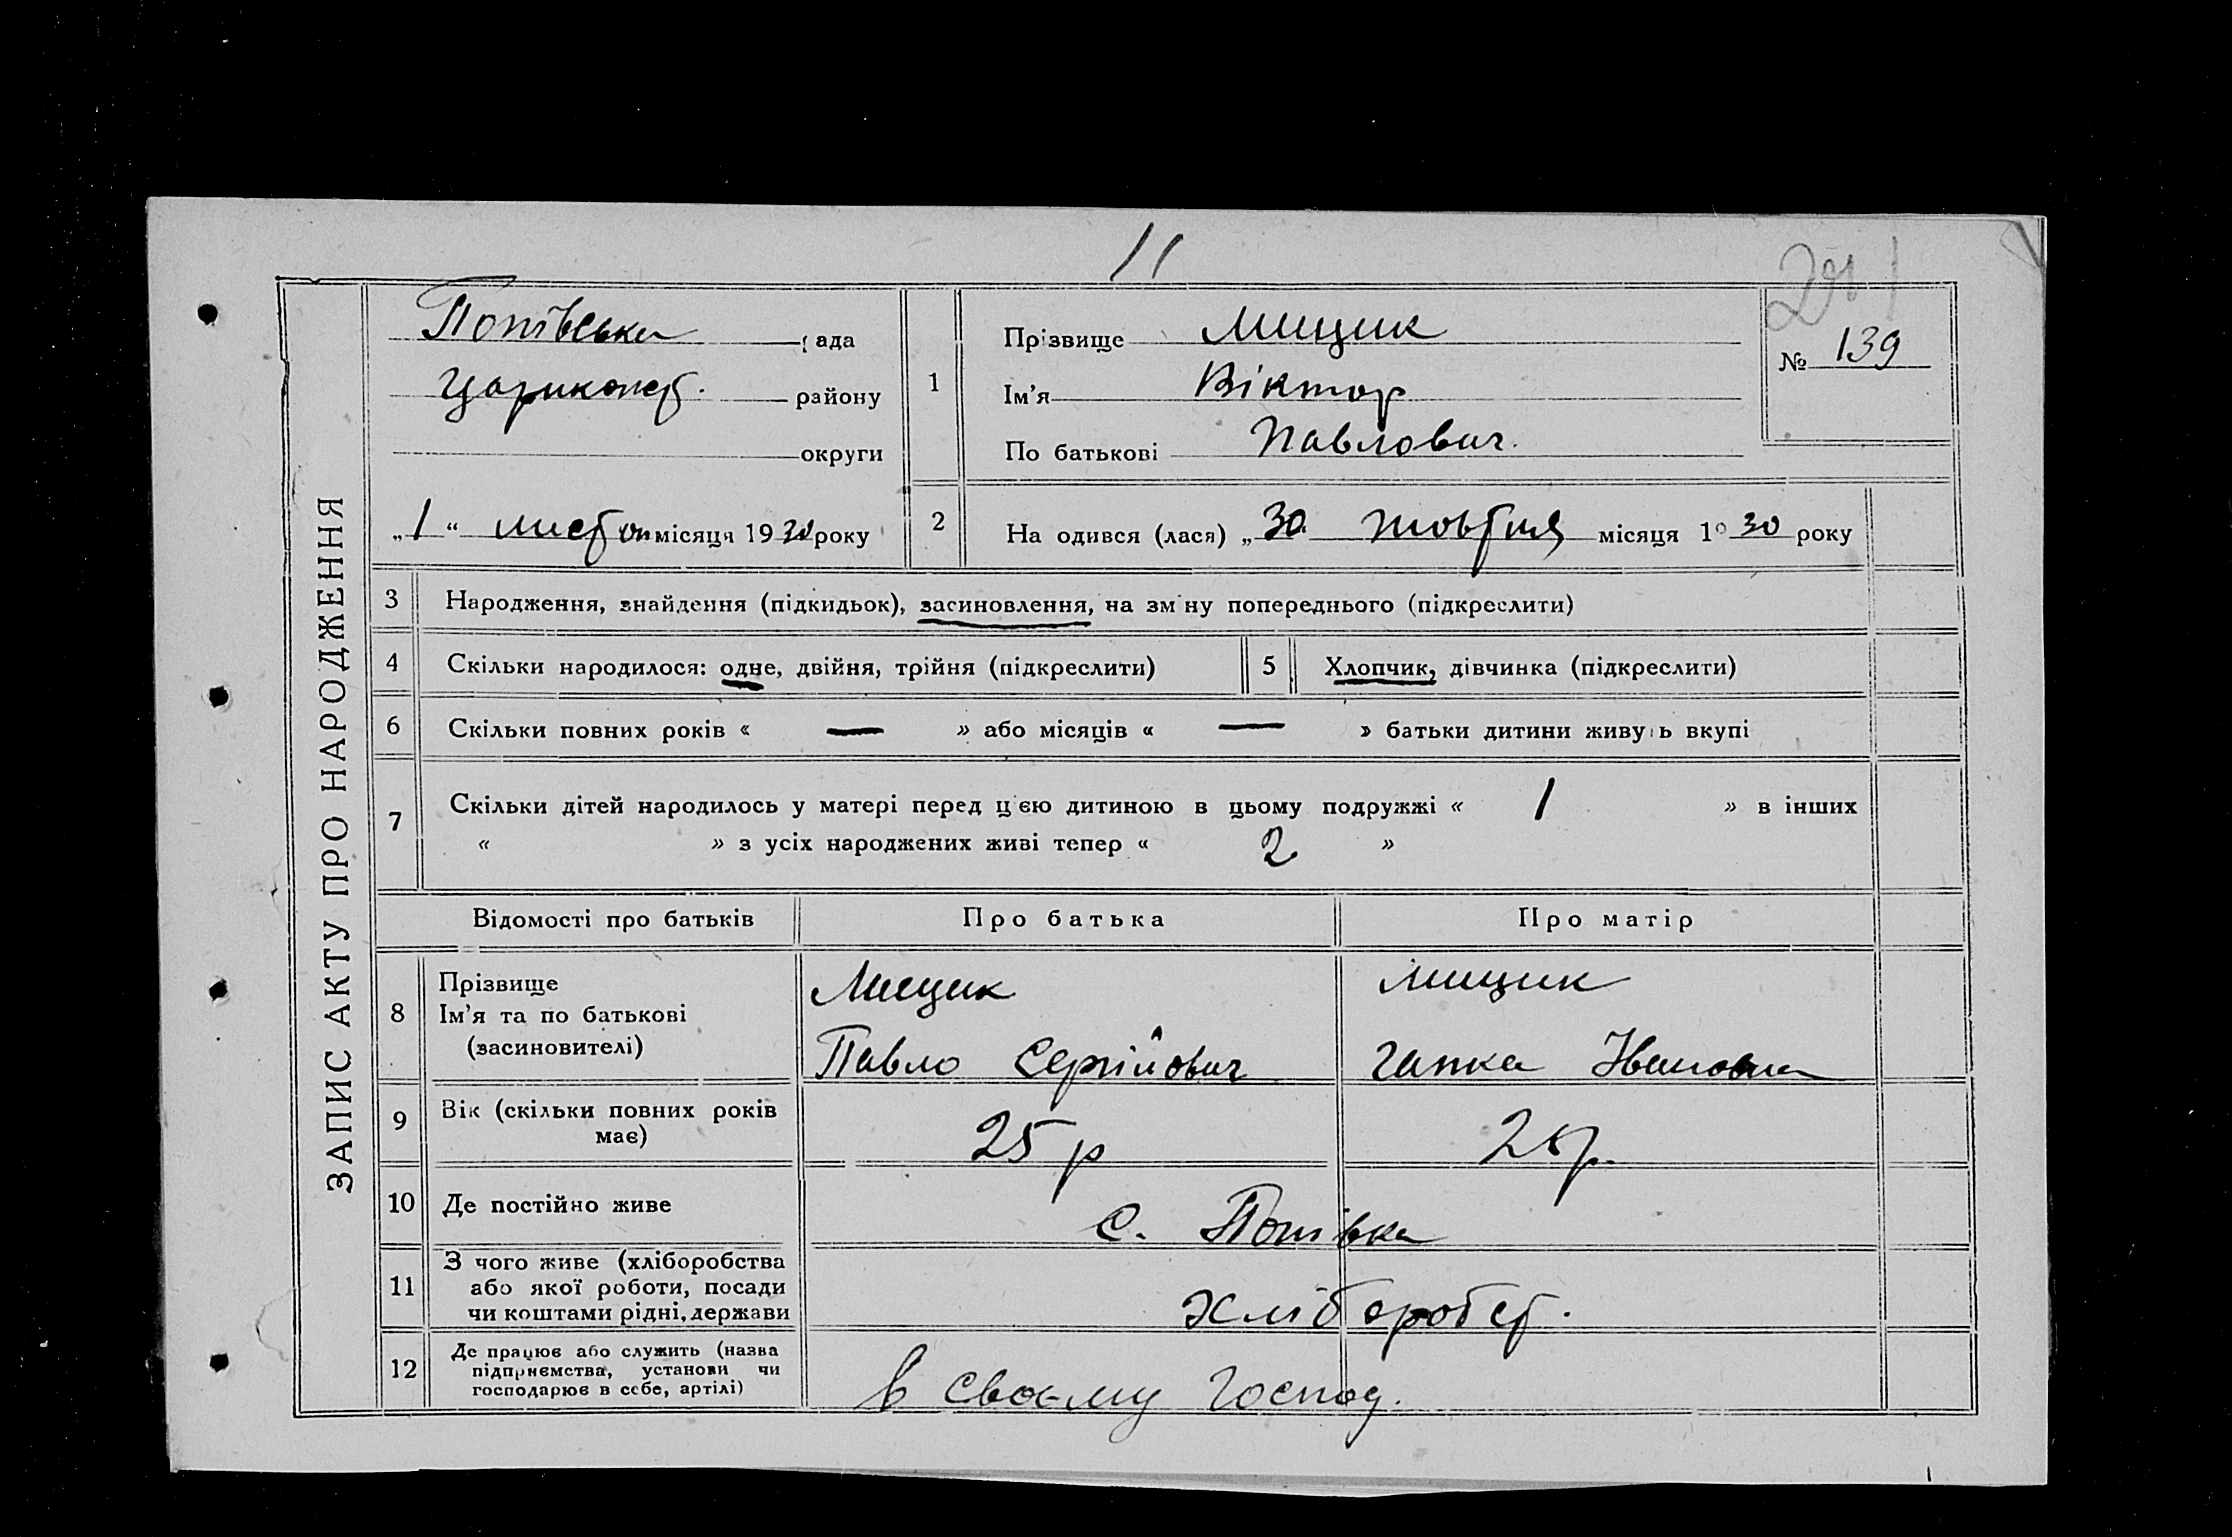 11
ЗАПИС АКТУ ПРО НАРОДЖЕННЯ
Попівська рада
Царичанс. району
округи
„1“ листоп місяця 1930 року
1
Прізвище Мищик
Ім’я Віктор
По батькові Павлович.
№ 139
2
На одився (лася) „30 жовтня місяця 1930 року
3 Народження, знайдення (підкидьок), засиновлення, на зміну попереднього (підкреслити)
4 Скільки народилося: одне, двійня, трійня (підкреслити) 5 Хлопчик, дівчинка (підкреслити)
6 Скільки повних років « — » або місяців « — » батьки дитини живуть вкупі
7 Скільки дітей народилось у матері перед цією дитиною в цьому подружжі « 1 » в інших
« » з усіх народжених живі тепер « 2 »
Відомості про батьків Про батька Про матір
8 Прізвище Мищик Мищик
Ім’я та по батькові
(засиновителі) Павло Сергійович Гапка Івановна
9 Вік (скільки повних років
має) 25 р р.
10 Де постійно живе с. Попівка
11 З чого живе (хліборобства
або якої роботи, посади
чи коштами рідні, держави хліборобст.
12 Де працює або служить (назва
підприємства, установи чи
господарює в себе, артілі) в своєму господ.